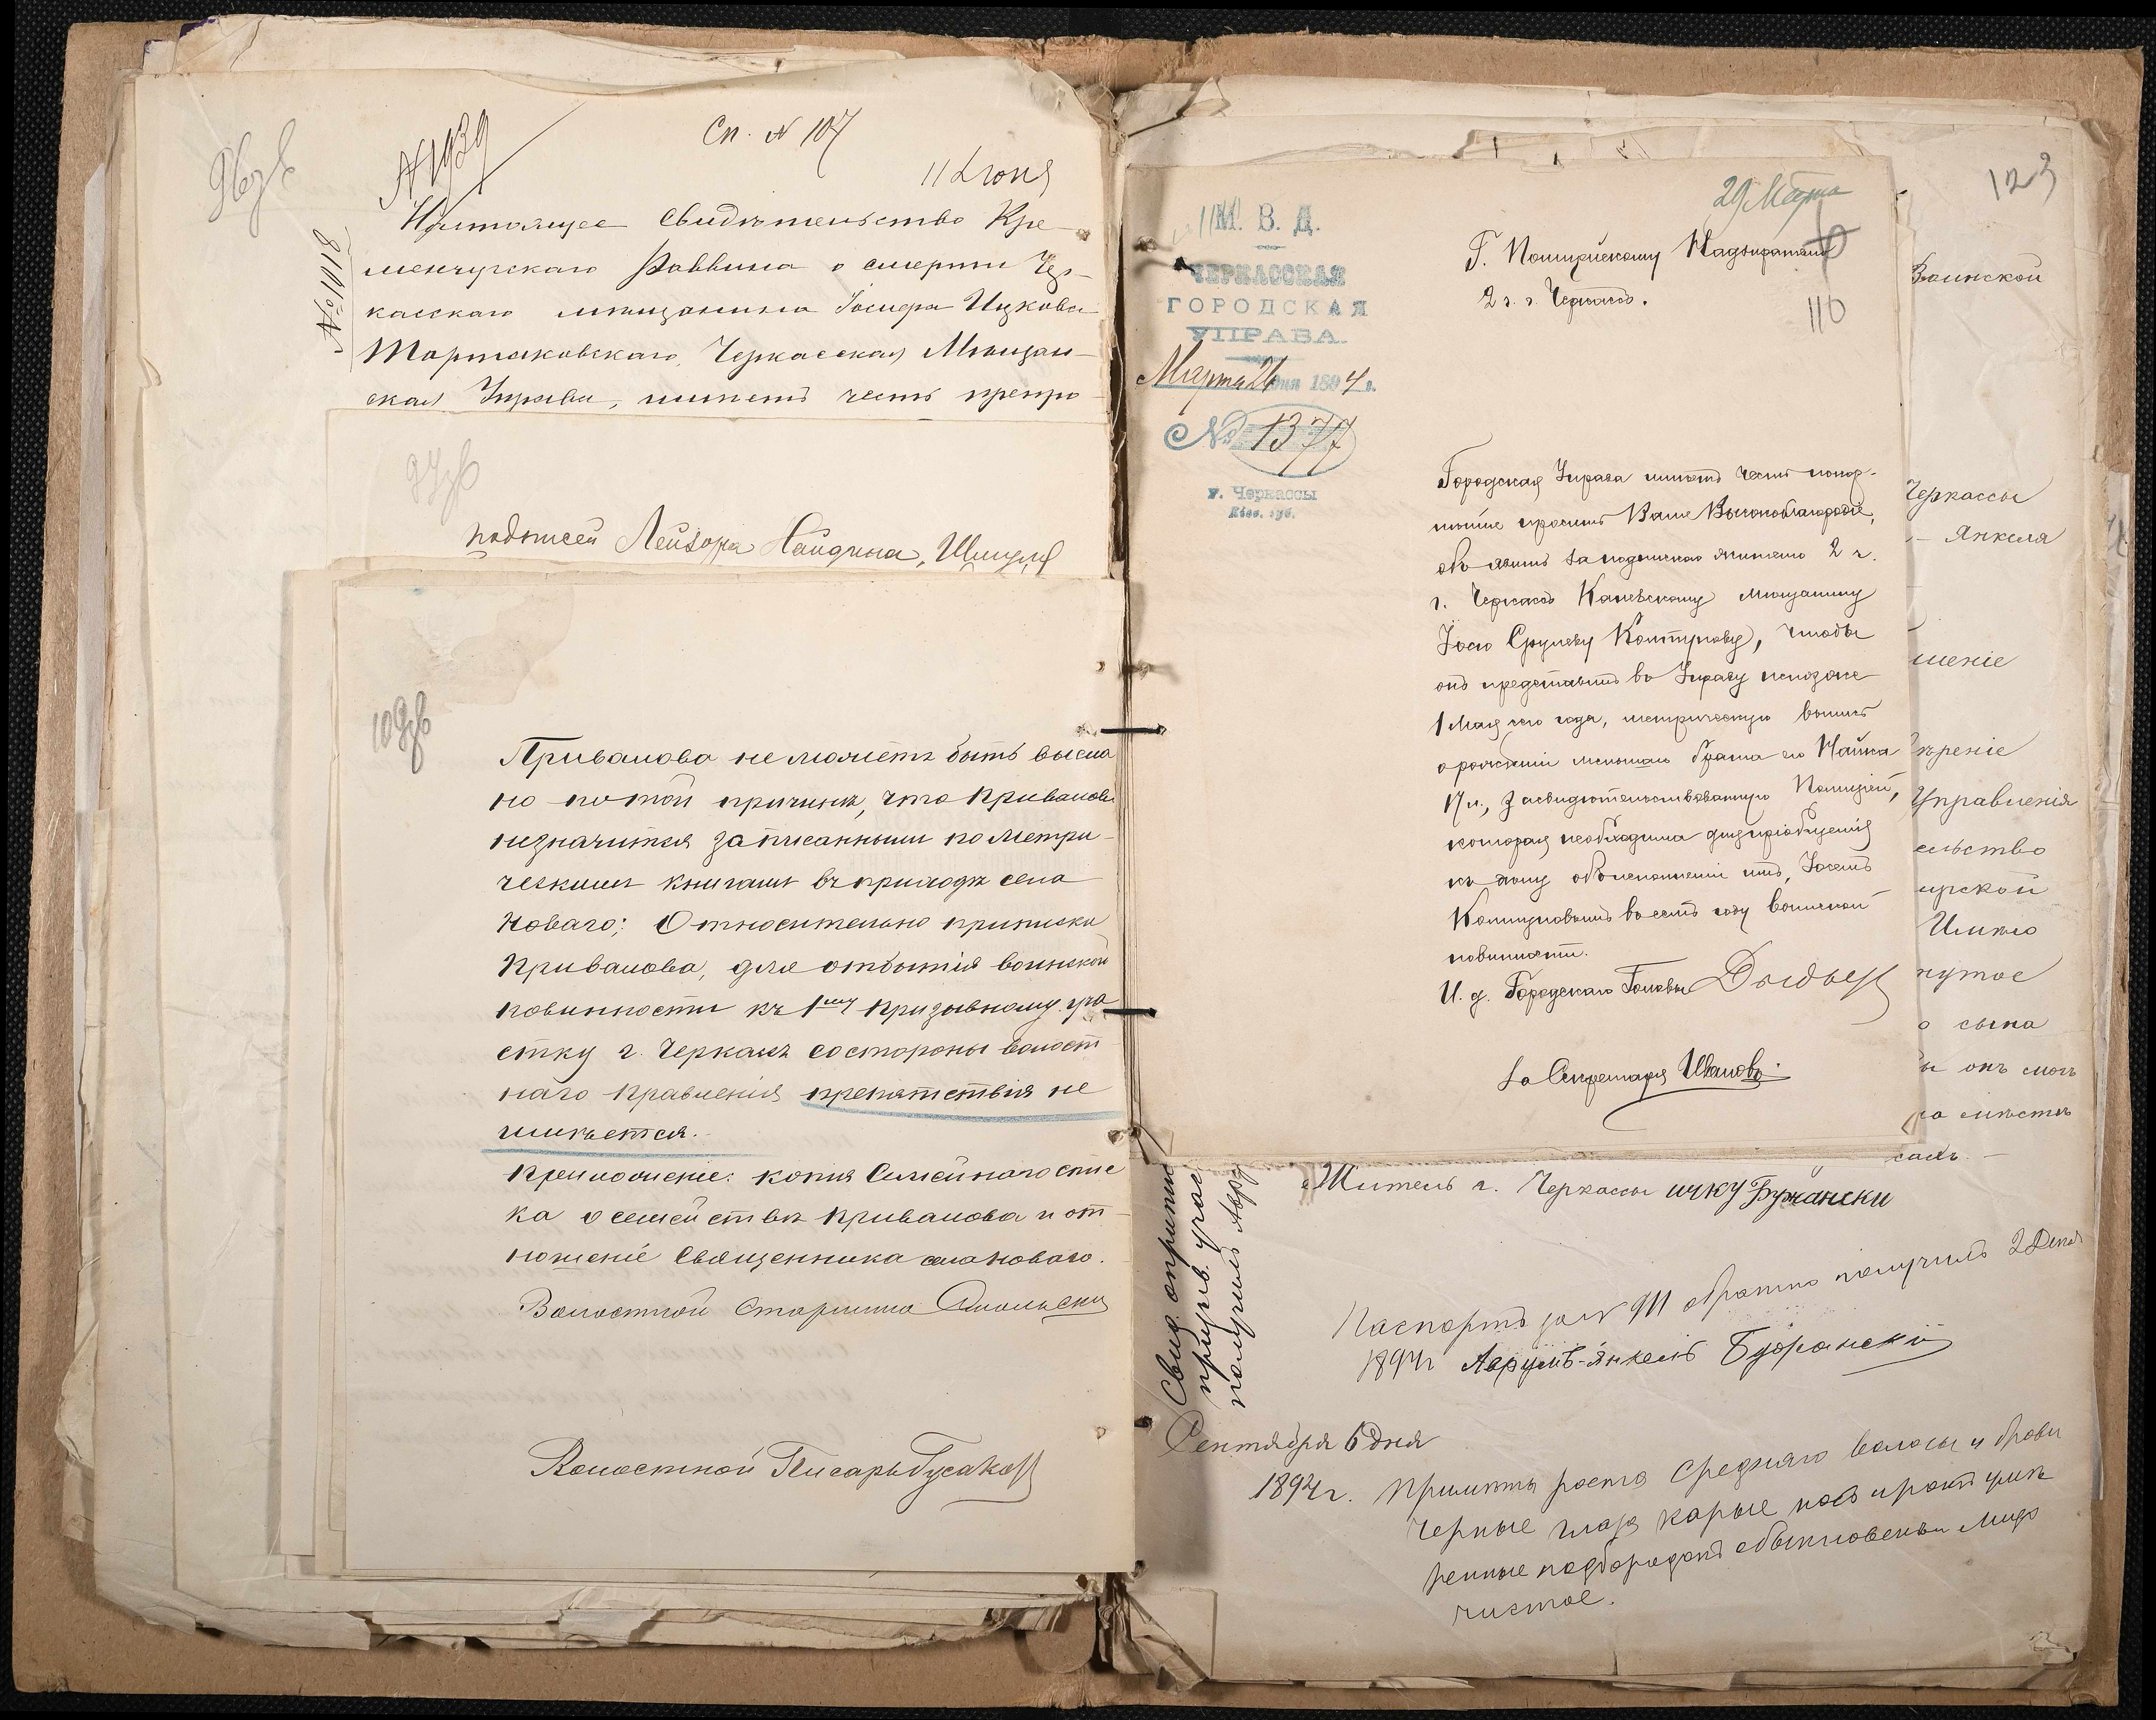 96об
N 1939
Сп. N 107
11 Июня
№ 11018
Настоящее Свидѣтельство Кре-
менчугскаго Раввина о смерти Чер-
касскаго мѣщанина Іосифа Ицкова
Тартаковскаго, Черкасская Мѣщан-
ская Управа, имѣетъ честь препро-
97об
подписей Лейзора Найдина, Шмуля
109об
Привалова не можетъ быть высла
но по той причинѣ, что Привалова
незначится записаннымъ по метри-
ческимъ книгамъ въ приходѣ села
Новаго; Относительно приписки
Привалова, для отбытія воинской
повинности къ 1му призывному уча
стку г. Черкасъ состороны волост
наго правленія препятствія не
имѣется.
Приложеніе: копія Семейнаго спис
ка о семействѣ Привалова и от
ношеніе Священника села Новаго.
Волостной Старшина
Волостной Писарь Гусаков
М. В. Д.
ЧЕРКАССКАЯ
ГОРОДСКАЯ
УПРАВА.
Марта 26 дня 1894 г.
№ 1377
г. Черкассы
Кіев. губ.
29 Марта
Г. Полицейскому Надзирателю
2 ч. г. Черкасъ.
110
Городская Управа имѣетъ честь покор-
нѣйше просить Ваше Высокоблагородіе,
объявить за подпискою жителю 2 ч.
г. Черкасъ Каневскому мѣщанину
Іосю Срулеву Контурову, чтобы
онъ представилъ въ Управу непозже
1 Мая сего года, метрическую выпись
о рожденіи меньшаго брата его
17 л., засвидѣтельствованную Полиціей,
которая необходима для пріобщенія
къ дѣлу объ исполненіи имъ, Іосемъ
Контуровымъ въ семъ году воинской
повинности.
И. д. Городскаго Головы
За Секретаря Ивановъ
123
Воинской
Черкассы
Янкеля
шеніе
ѣреніе
Управленія
ельство
ирской
нутое
о сына
ы онъ могъ
ло мѣстѣ
Житель г. Черкассы ицку Бужански
Свид. о припис
призыв. учас
получилъ Авру
Паспортъ за N 911 обратно получилъ 2 Дека
1894 г Аврумъ-Янкель Бужанскій
Сентября 6 дня
1894 г. Примѣты роста Средняго волосы и брови
черные глаза карые носъ и ротъ умѣ
ренные подбородокъ обыкновенны лицо
чистое.